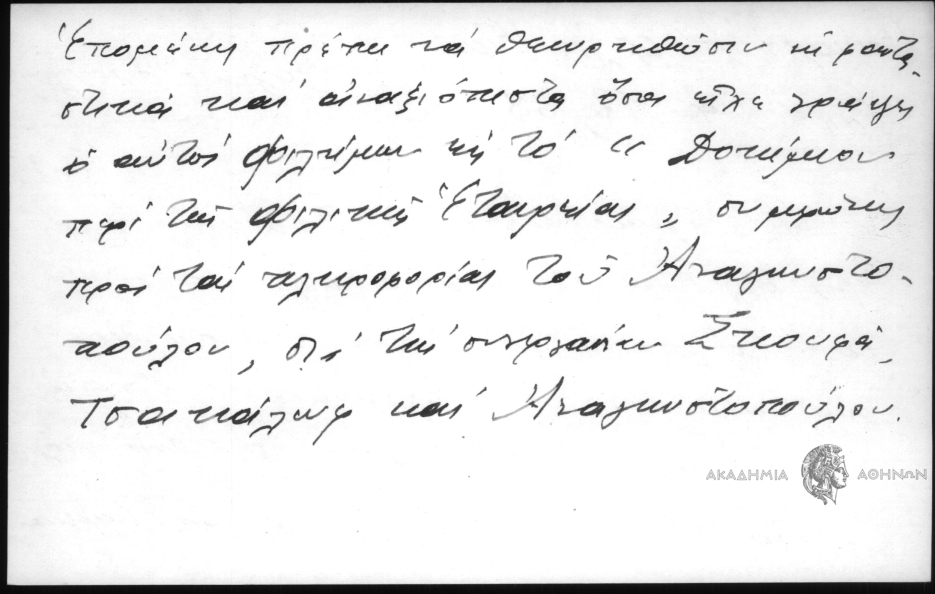 Ἑπομένως πρέπει νά θεωρηθῶσιν ὡς φαντα-
στικά καί ἀναξιόπιστα ὅσα εἶχε γράψει
ὁ αὐτός Φιλήμων εἰς τό "Δοκίμιον
περί τῆς Φιλικῆς Ἑταιρείας" συμφώνως
πρός τάς πληροφορίας τοῦ Ἀναγνωστο-
πούλου, διά τήν συνεργασίαν Σκουφᾶ,
Τσακάλωφ καί Ἀναγνωστοπούλου.
ΑΚΑΔΗΜΙΑ ΑΘΗΝΩΝ